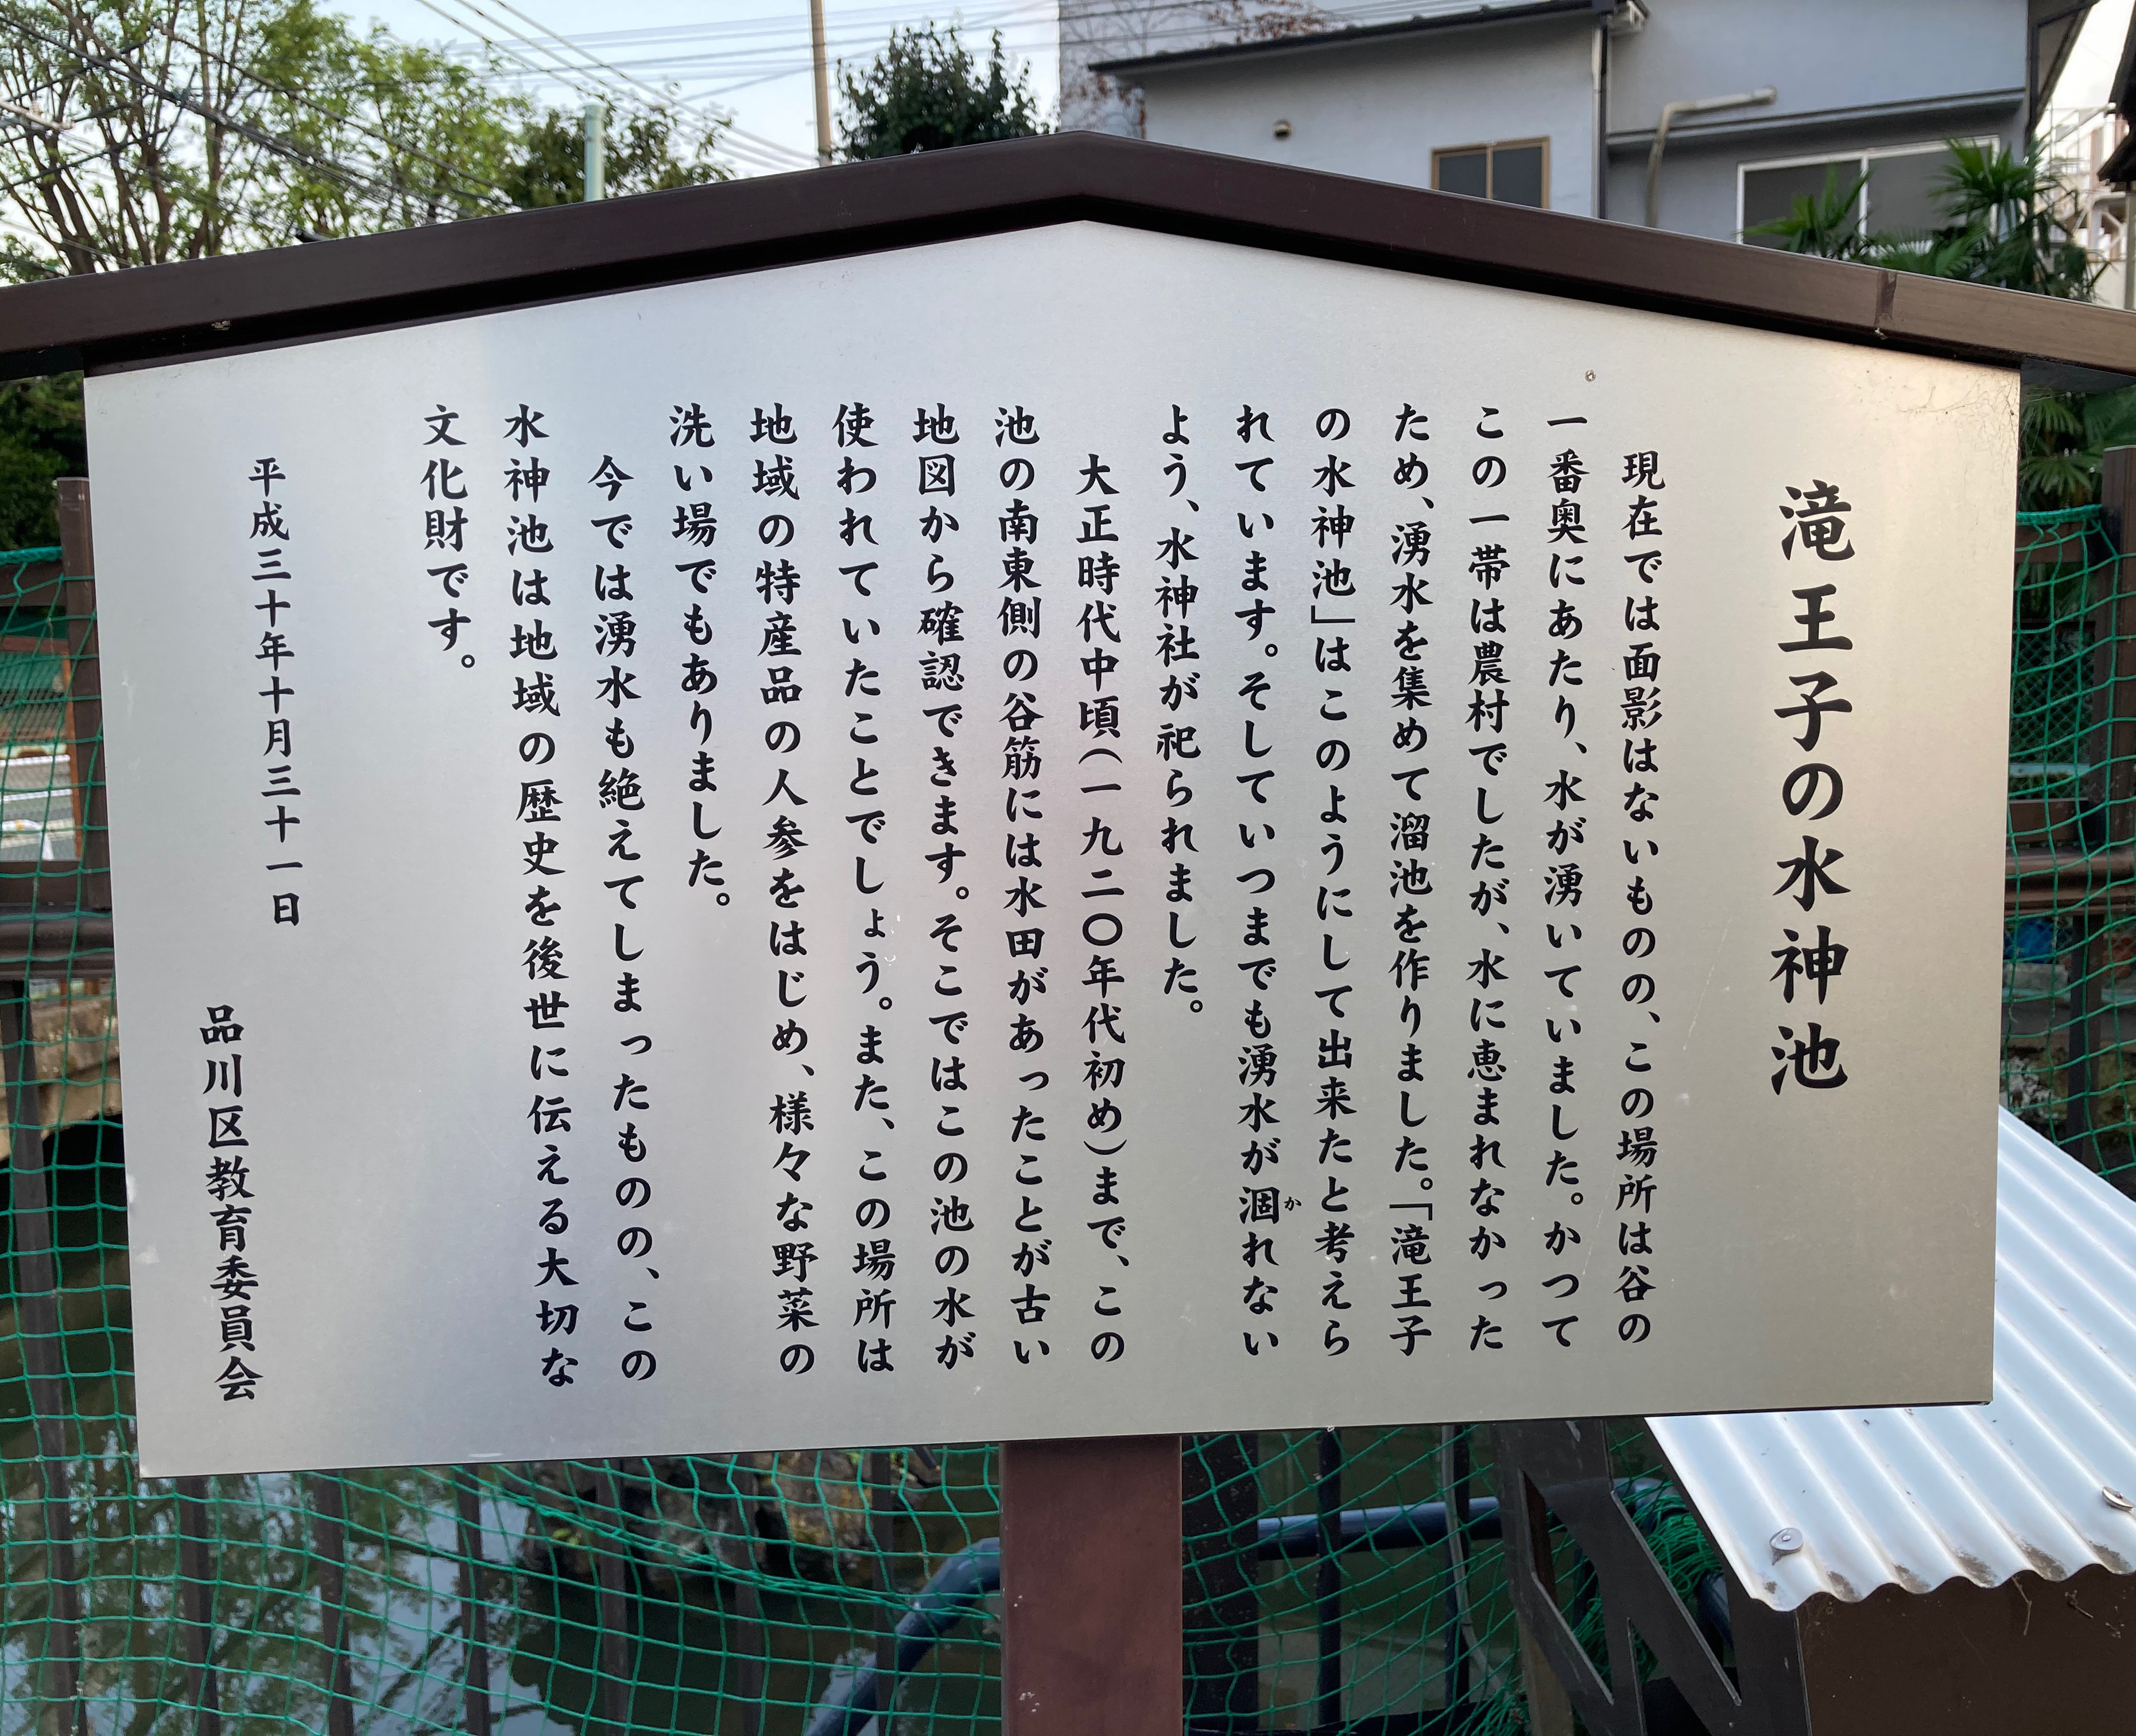 滝王子の水神池
現在では面影はないものの、この場所は谷の
一番奥にあたり、水が湧いていました。かつて
この一帯は農村でしたが、水に恵まれなかった
ため、湧水を集めて溜池を作りました。「滝王子
の水神池」はこのようにして出来たと考えら
れています。そしていつまでも湧水が涸れない
か
よう、水神社が祀られました。
大正時代中頃(一九二〇年代初め)まで、この
池の南東側の谷筋には水田があったことが古い
地図から確認できます。そこではこの池の水が
使われていたことでしょう。また、この場所は
地域の特産品の人参をはじめ、様々な野菜の
洗い場でもありました。
今では湧水も絶えてしまったものの、この
水神池は地域の歴史を後世に伝える大切な
文化財です。
平成三十年十月三十一日
品川区教育委員会